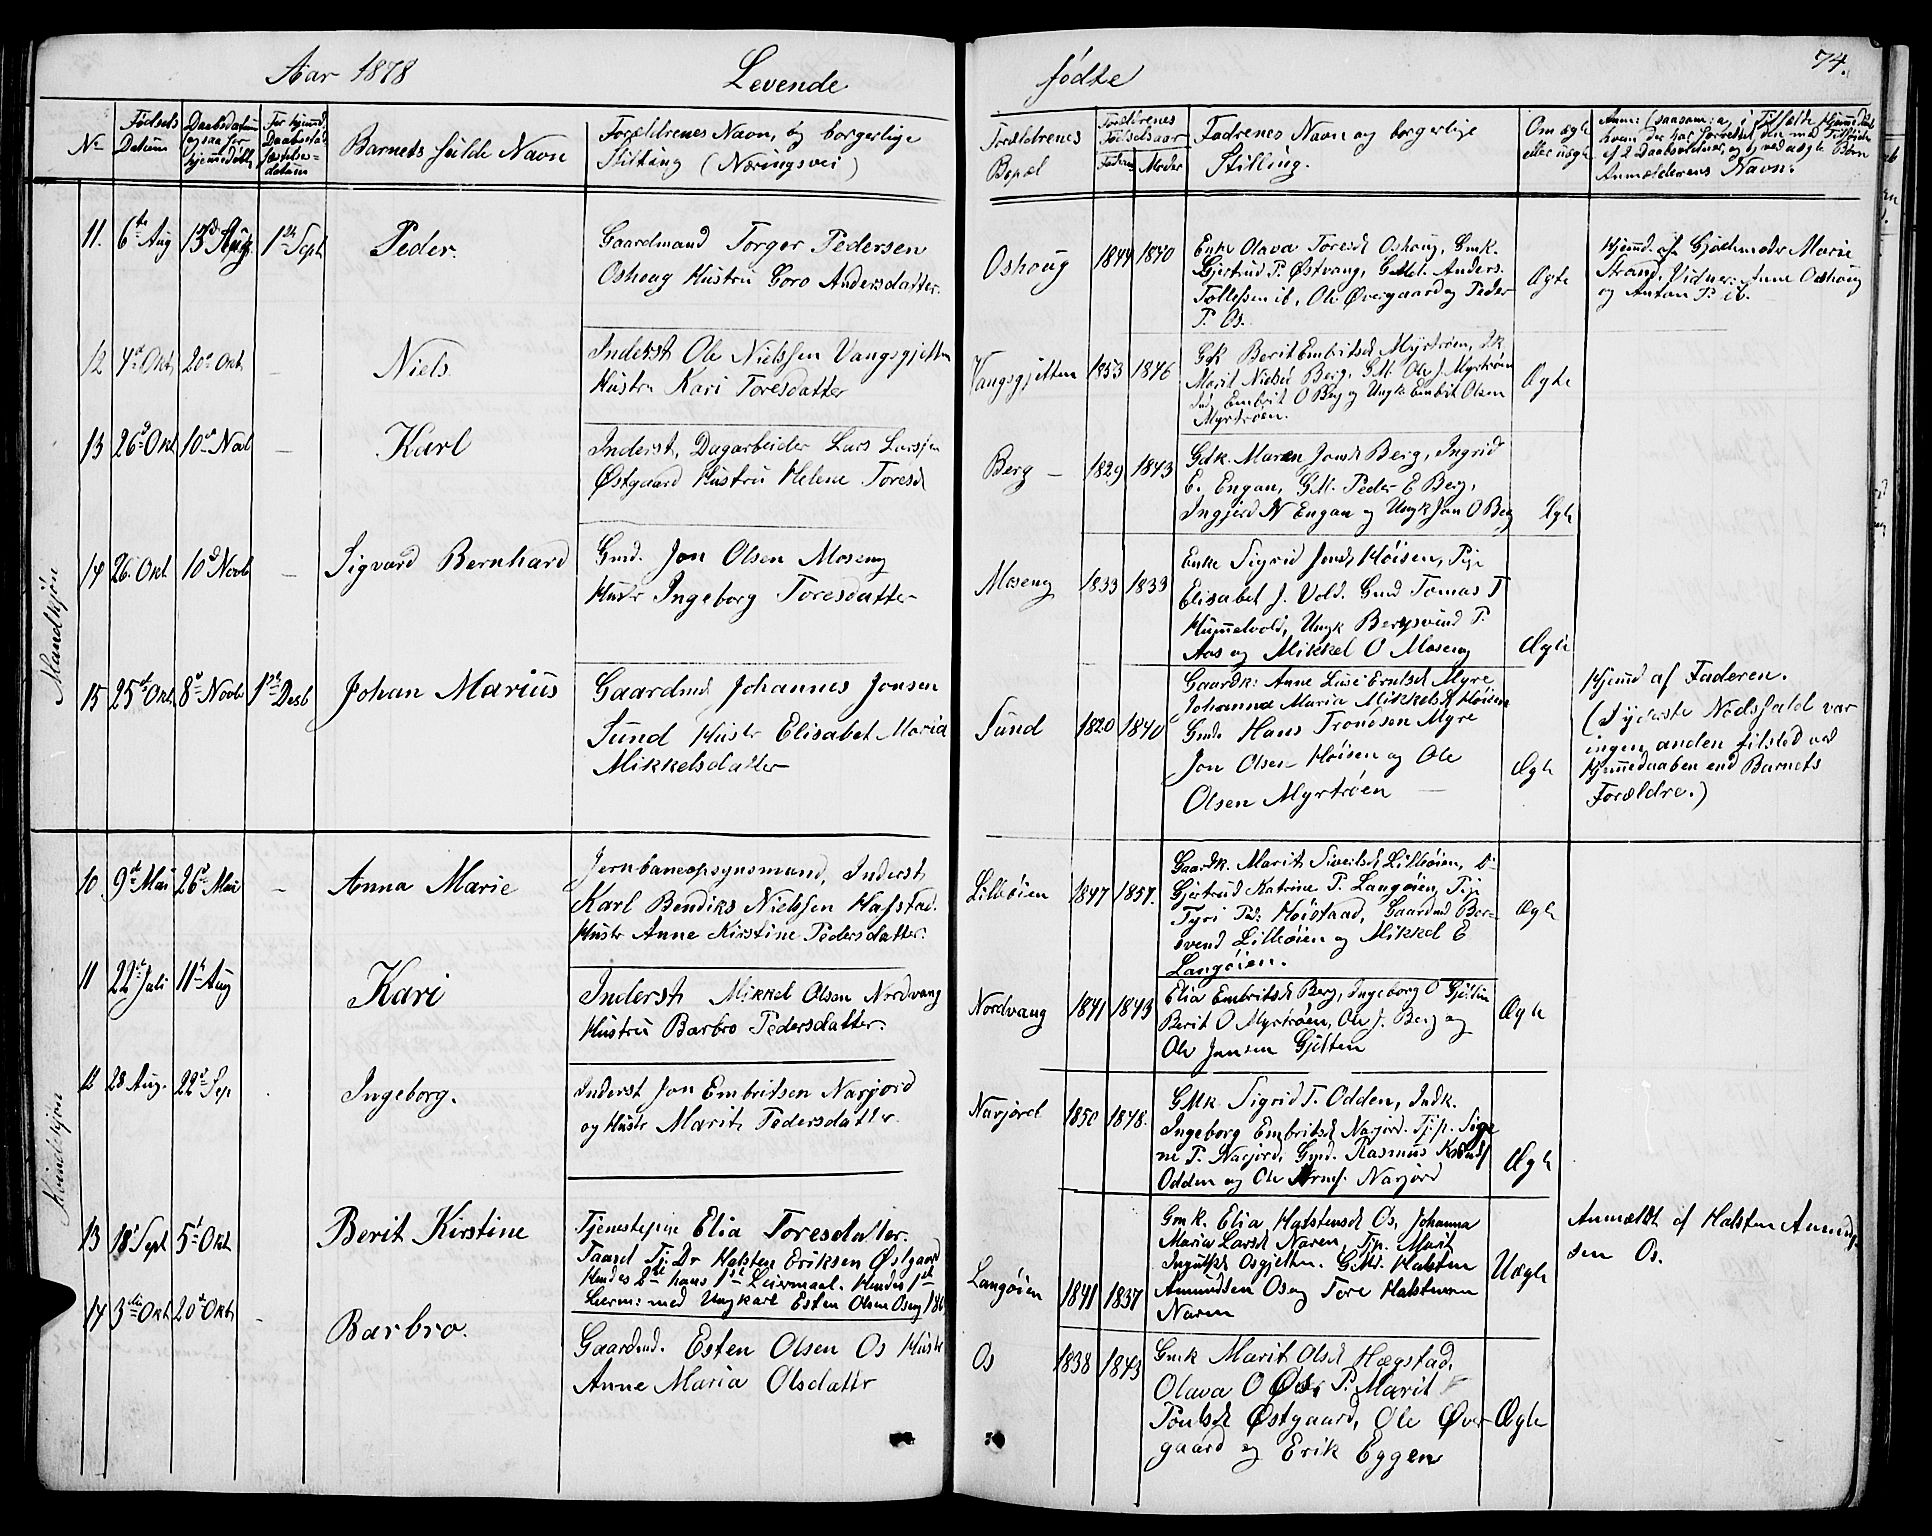 Aar 1878
Levende
fødte
74.
No
Fødsels Datum
Daabsdatum
Barnets fulde Navn
Forældrenes Navn, og borgerlige
Stilling (Næringsvei)
Forældrenes
Bopæl
Forældrenes
Fødselsaar
Faders
Moder
Fadrenes Navn og borgerlige
Stilling.
Om ægte
eller uægte
Anmelderens Navn.
Mandkjön
11. 6te Aug 13de Aug 1ste Sept
Peder.
Gaardmand Torger Pedersen
Oshoug Hustru Goro Andersdatter.
Oshoug
1844 1840
Enke Olava Toresd Oshoug, Gmk.
Gjertrud P. Østvang, GMd. Anders
Tollefsen ib, Ole Øvergaard og Peder
P. Os.
Ægte
Hjemd. af Gjordemoder Marie
Strand, Vidner: Anne Oshoug
og Anton P. ib.
12 4de Okt 20de Okt —
Niels
Inderst Ole Nielssen Vangsgjetten
Hustru Kari Toresdatter
Vangsgjetten 1853 1846
Gk Berit Embritsd Myrtröen, Ik
Marit Nielsd Berg, GM. Ole J. Myrtröen
Ind. Embrit O Berg og Ungk Embrit Olsen
Myrtröen.
Ægte
13 26de Okt 10de Novb —
Karl
Inderst, Dagarbeider Lars Larssen
Østgaard Hustru Helene Toresd
Berg — 1829 1843
Gdk. Maren Jonsd Berg, Ingrid
E. Engan, GM. Peder E Berg,
Ingjerd N Engan og Ungk Jon O Berg
Ægte
14 26 Okt 10de Novb —
Sigvard Bernhard
Gmd. Jon Olsen Moseng
Hustr Ingeborg Toresdatter
Moseng 1833 1833
Enke Sigrid Jonsd, Höisen, Pige
Elisabet J. Vold. Gmd Tomas T
Hummelvold, Ungk Bersvend P.
Aas og Mikkel O Moseng
Ægte
15 25de Okt 8de Novb 1ste Desb
Johan Marius
Gaardmd Johannes Jonsen
Sund Hustr Elisabet Maria
Mikkelsdatter
Sund 1820 1840
Gaardk: Anne Lusie Erntsd Myre
Johanna Maria Mikkelsd Höisen
Gmd. Hans Tronesen Myre
Jon Olsen Höisen og Ole
Olsen Myrtröen —
Ægte
Hjemd af Faderen.
(I yderste Nödsfald var
ingen anden tilsted ved
Hjemmedaaben end Barnets
Forældre.)
Kvindekjön
10. 9de Mai 26de Mai —
Anna Marie
Jernbaneopsynsmand, Inderst
Karl Bendiks Nielssen Hafstad.
Hustr Anne Kirstine Pedersdatter.
Lilleöien 1847 1857.
Gaardk. Marit Sivertsd Lilleöien,
Gjertrud Katrine P. Langöien, Pige
Tyri Höistaad, Gaardmd Ber-
svend Lilleöien og Mikkel E
Langöien.
Ægte
11 22de Juli 11te Aug
Kari
Inderst Mikkel Olsen Nordvang
Hustru Barbro Pedersdatter.
Nordvang 1841 1843
Elia Embritsd Berg, Ingeborg O Gjelten
Berit O Myrtröen, Ole J. Berg og
Ole Jonsen Gjelten
Ægte
12 28 Aug. 22de Sep .
Ingeborg.
Inderst Jon Embritsen Narjord
og Hustr Marit Pedersdatter.
Narjord 1850 1848.
GMk. Sigrid T. Odden, Indk.
Ingeborg Embritsd Narjord. Tj.p. Sig
ne P. Narjord, Gmd. Rasmus Knuds
Odden og Ole Arns. Narjord
Ægte
13 18de Sept 5te Okt
Berit Kirstine
Tjenestepige Elia Toresdatter.
Faard Tj. Dr Halsten Eriksen Østgaard
Hendes 2det hans 1ste Leiermaal. Hendes 1ste
Leierm: med Ungkarl Esten Olsen Oseng 186
Langöien 1841 1837
Gmk. Elia Halstensd Os, Johanna
Maria Larsd Naren, Tjp. Marit
Ingulfsd Osgjetten. GMd. Halsten
Amundsen Os og Tore Halstensen
Naren
Uægte
Anmeldt af Halsten Amund-
sen Os.
14 3die Okt 20de Okt —
Barbro.
Gaardmd. Esten Olsen Os Hustr
Anne Maria Olsdattr
Os 1838 1843
Gmk Marit Olsd Hægstad,
Olava O Øs, P. Marit
Poulsd Østgaard, Ole Øver-
gaard og Erik Eggen
Ægte